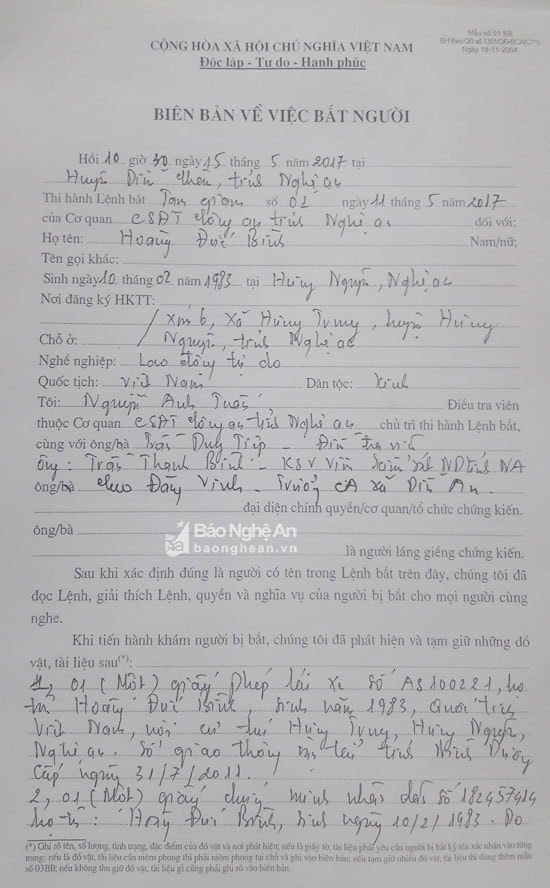 Mẫu số 01 BB
BH theo QĐ số 1351/QĐ-BCA(C11)
Ngày 18-11-2004
CỘNG HÒA XÃ HỘI CHỦ NGHĨA VIỆT NAM
Độc lập - Tự do - Hạnh phúc
BIÊN BẢN VỀ VIỆC BẮT NGƯỜI
Hồi 10 giờ 30 ngày 15 tháng 5 năm 2017 tại
Huyện Diễn Châu, tỉnh Nghệ an
Thi hành Lệnh bắt Tạm giam số 02 ngày 11 tháng 5 năm 2017
của Cơ quan CSĐT Công an tỉnh Nghệ an đối với:
Họ tên: Hoàng Đức Bình Nam/nữ;
Tên gọi khác:
Sinh ngày 10 tháng 02 năm 1983 tại Hưng Nguyên, Nghệ an
Nơi đăng ký HKTT:
Xóm 6, Xã Hưng Trung, huyện Hưng
Chỗ ở: Nguyên, tỉnh Nghệ an
Nghề nghiệp: Lao động tự do
Quốc tịch: Việt Nam Dân tộc: Kinh
Tôi: Nguyễn Anh Tuấn Điều tra viên
thuộc Cơ quan CSĐT Công an tỉnh Nghệ an chủ trì thi hành Lệnh bắt,
cùng với ông/bà Trần Duy Tiếp - Điều tra viên
Ông: Trần Thanh Bình - KSV Viện kiểm sát ND tỉnh NA
ông/bà Cao Đăng Vinh - Trưởng CA xã Diễn An.
đại diện chính quyền/cơ quan/tổ chức chứng kiến.
Báo Nghệ An
baonghean.vn
ông/bà
là người láng giềng chứng kiến.
Sau khi xác định đúng là người có tên trong Lệnh bắt trên đây, chúng tôi đã
đọc Lệnh, giải thích Lệnh, quyền và nghĩa vụ của người bị bắt cho mọi người cùng
nghe.
Khi tiến hành khám người bị bắt, chúng tôi đã phát hiện và tạm giữ những đồ
vật, tài liệu sau(*):
1, 01 (Một) giấy phép lái xe số AS100221, họ
tên Hoàng Đức Bình, sinh năm 1983, Quốc tịch
Việt Nam, nơi cư trú Hưng Trung, Hưng Nguyên,
Nghệ an. Sở giao thông vận tải tỉnh Bình Dương
Cấp ngày 31/7/2011.
2, 01 (Một) giấy chứng minh nhân dân số 182457414
họ tên: Hoàng Đức Bình, sinh ngày 10/2/1983. Do
(*) Ghi rõ tên, số lượng, tình trạng, đặc điểm của đồ vật và nơi phát hiện; nếu là giấy tờ, tài liệu phải yêu cầu người bị bắt ký tên xác nhận vào từng
trang; nếu là đồ vật, tài liệu cần niêm phong thì phải niêm phong tại chỗ và ghi vào biên bản; nếu tạm giữ nhiều đồ vật, tài liệu thì dùng thêm mẫu
số 03BB; nếu không thu giữ đồ vật, tài liệu gì cũng phải ghi rõ vào biên bản.